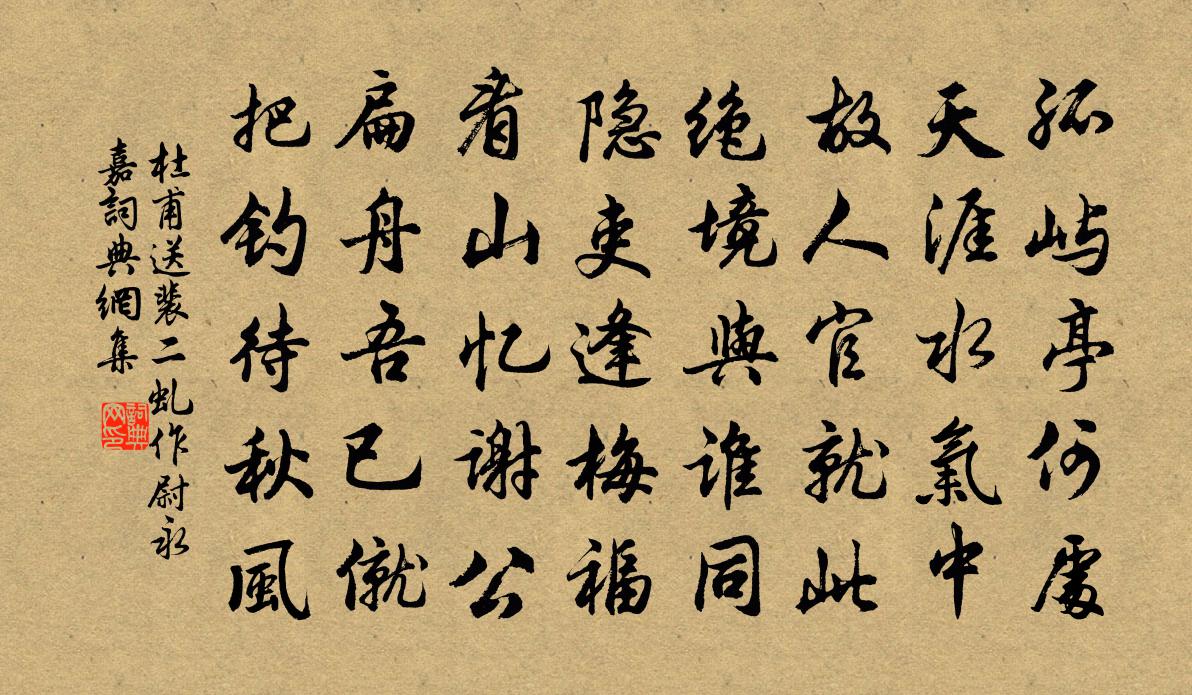 孤屿亭何處
天涯水氣中
故人官就此
绝境與谁同
隐吏逢梅福
看山忆谢公
扁舟吾已僦
把釣待秋風
杜甫送裴二虬作尉永
嘉詞典網集
詞典网印